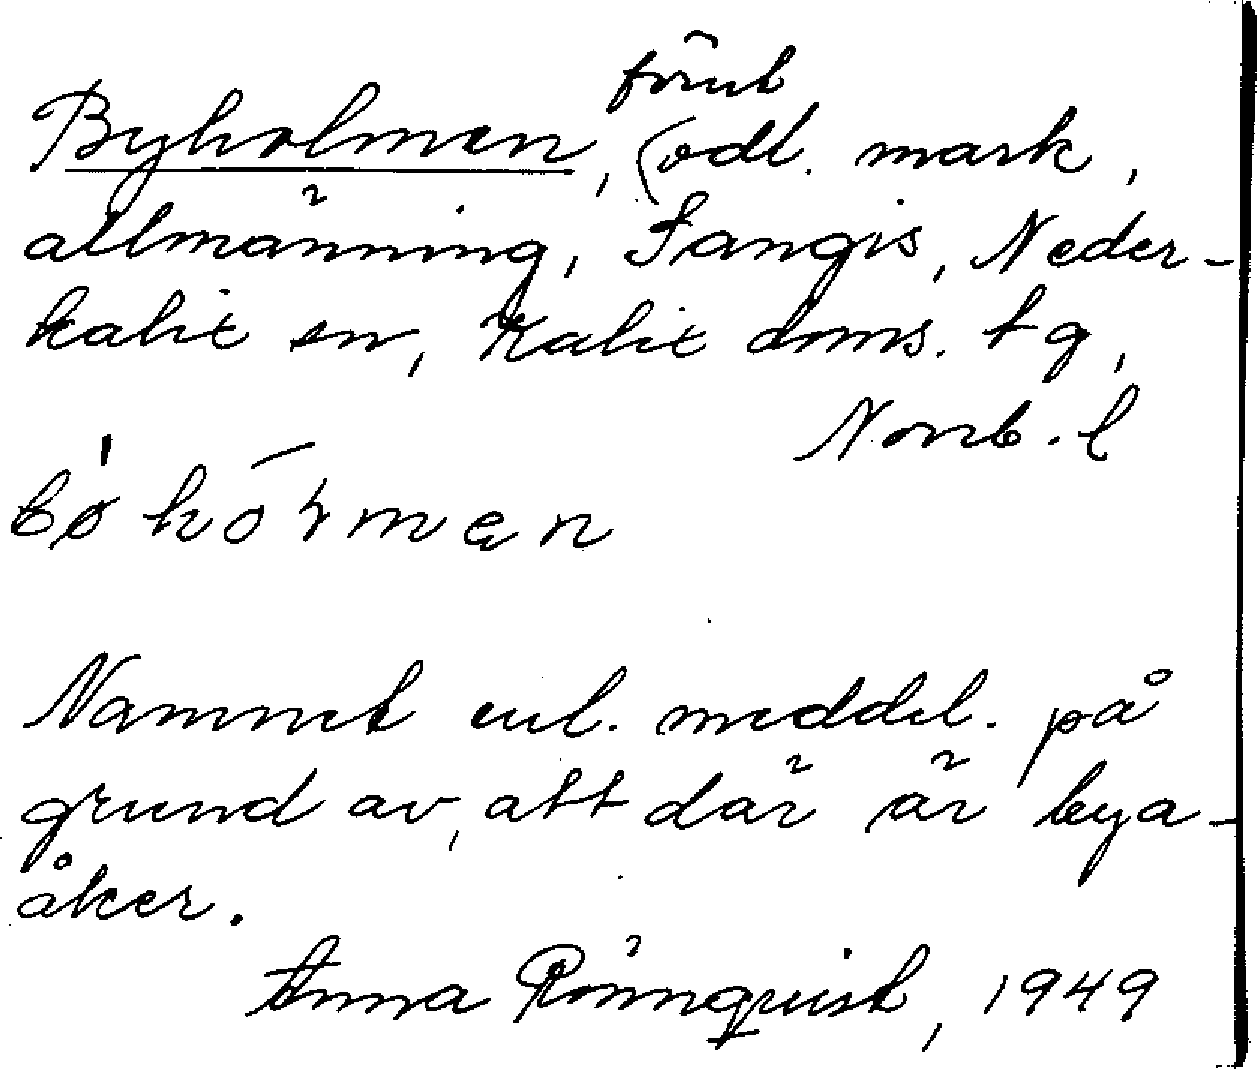 förut
Byholmen, (odl. mark,
allmänning, Sangis, Neder-
kalix sn, Kalix doms. tg,
Norrb. l
Namnet enl. meddel. på
grund av, att där är bya-
åker.
Anna Rönnquist, 1949